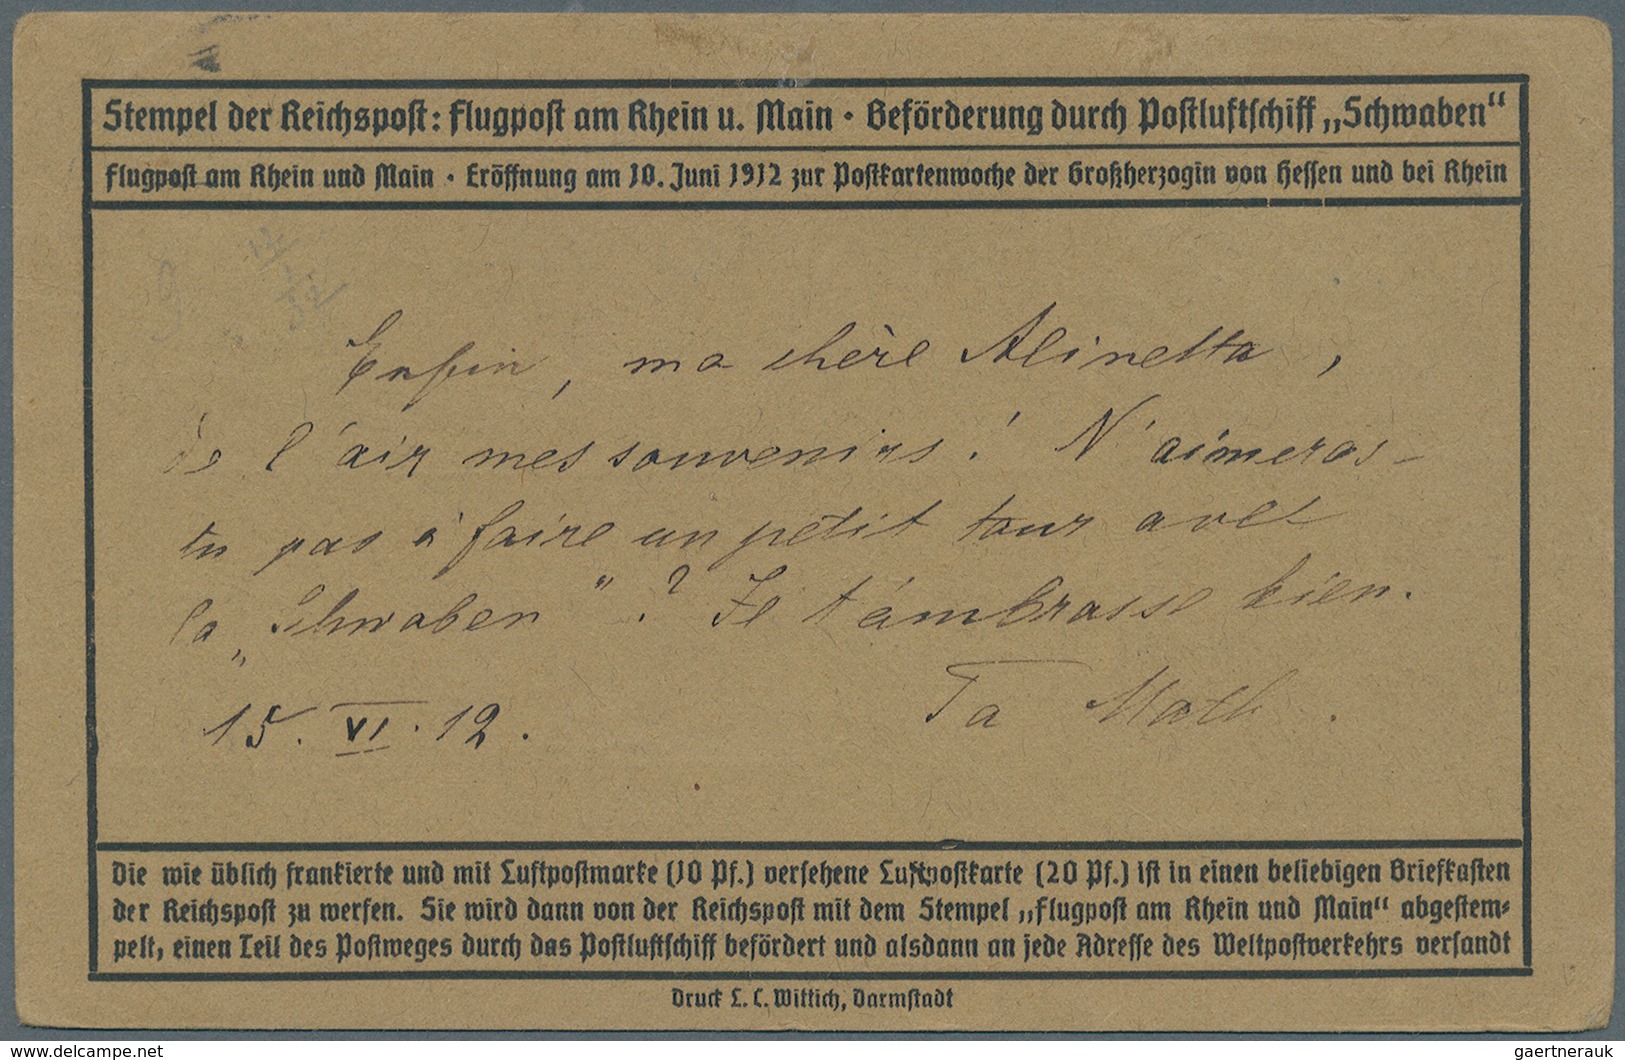 Stempel der Reichspost: Flugpost am Rhein u. Main · Beförderung durch Postluftschiff „Schwaben“
Flugpost am Rhein und Main · Eröffnung am 10. Juni 1912 zur Postkartenwoche der Großherzogin von Hessen und bei Rhein
Enfin, ma chère Alinetta,
de l'air mes souvenirs! N'aimeras-
tu pas à faire un petit tour avec
la „Schwaben“? Je t'ambrasse bien.
Ta Math.
15. VI. 12.
Die wie üblich frankierte und mit Luftpostmarke (10 Pf.) versehene Luftpostkarte (20 Pf.) ist in einen beliebigen Briefkasten
der Reichspost zu werfen. Sie wird dann von der Reichspost mit dem Stempel „Flugpost am Rhein und Main“ abgestem-
pelt, einen Teil des Postweges durch das Postluftschiff befördert und alsdann an jede Adresse des Weltpostverkehrs versandt
Druck L. C. Wittich, Darmstadt
www.delcampe.net
gaertnerauk